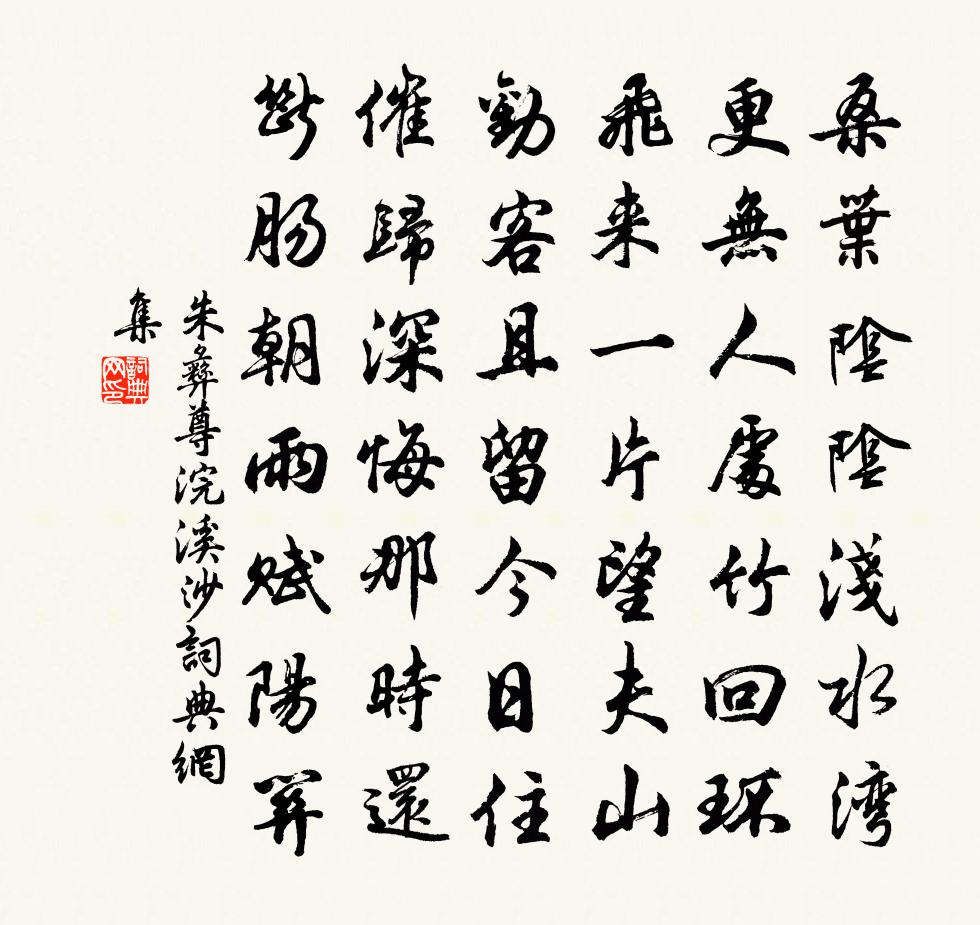 桑葉陰陰淺水湾
更無人處竹回环
飛来一片望夫山
勸客且留今日住
催歸深悔那時還
断肠朝雨賦陽関
朱彝尊浣溪沙詞典網
集
詞典网印